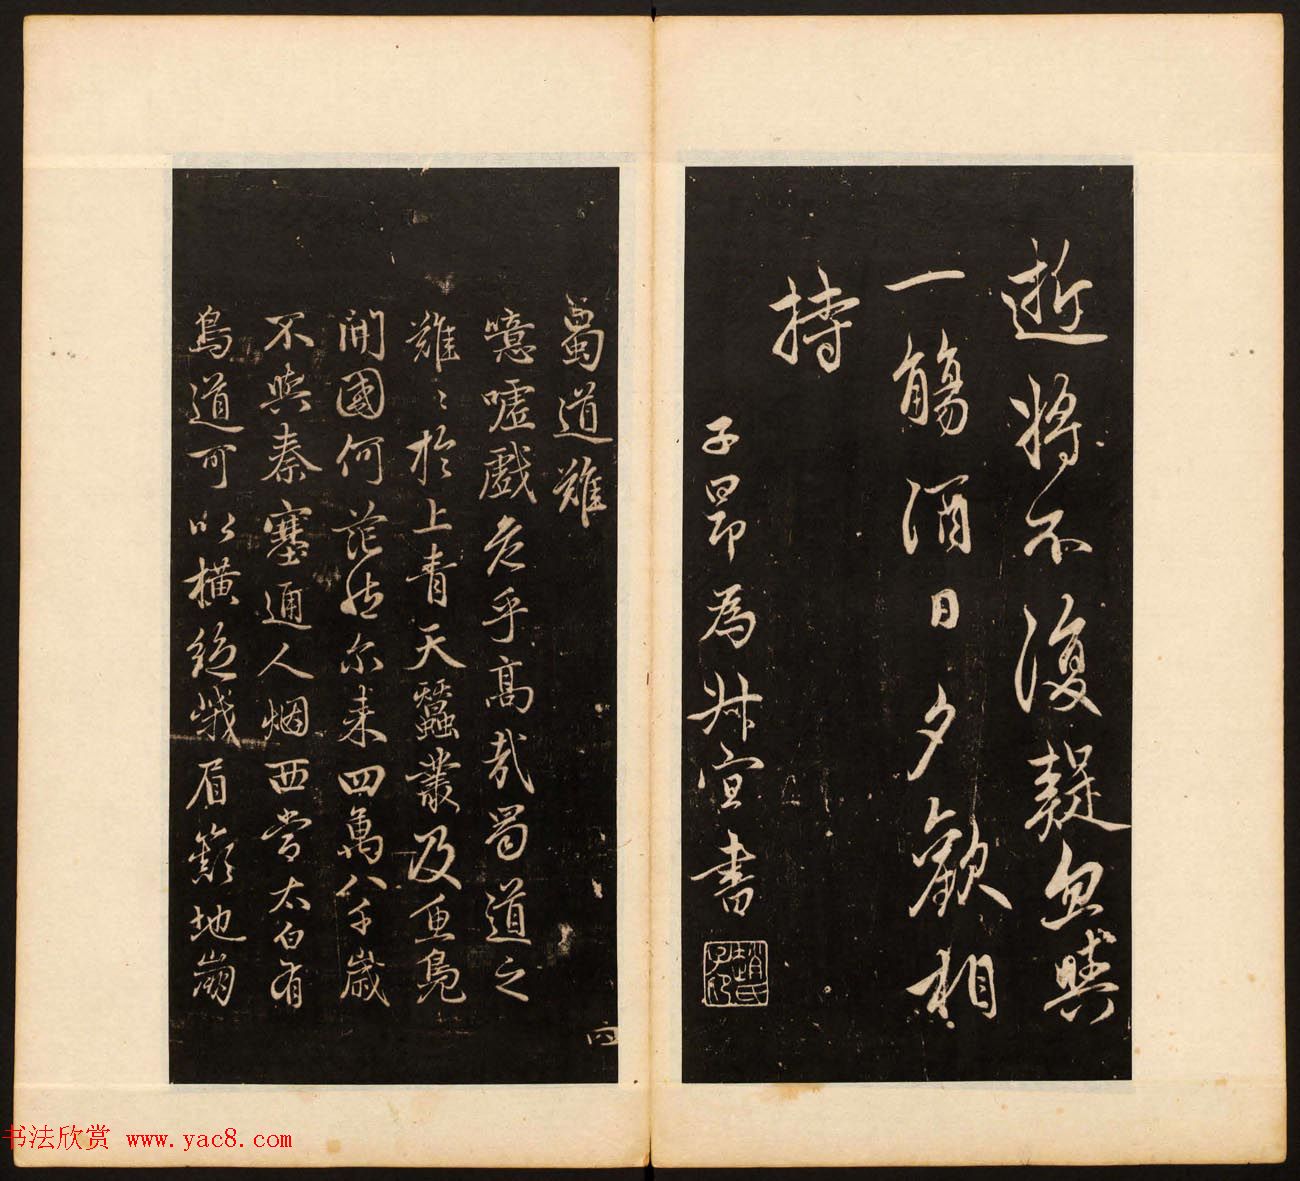 逝將不復疑忽與
一觴酒日夕歡相
持
子昂為叔宣書
趙氏子昂
蜀道難
噫嘘戲危乎高哉蜀道之
難〻於上青天蠶叢及魚鳧
開國何茫然尓来四萬八千歲
不與秦塞通人烟西當太白有
鳥道可以橫絕峨眉巔地崩
四
书法欣赏 www.yac8.com